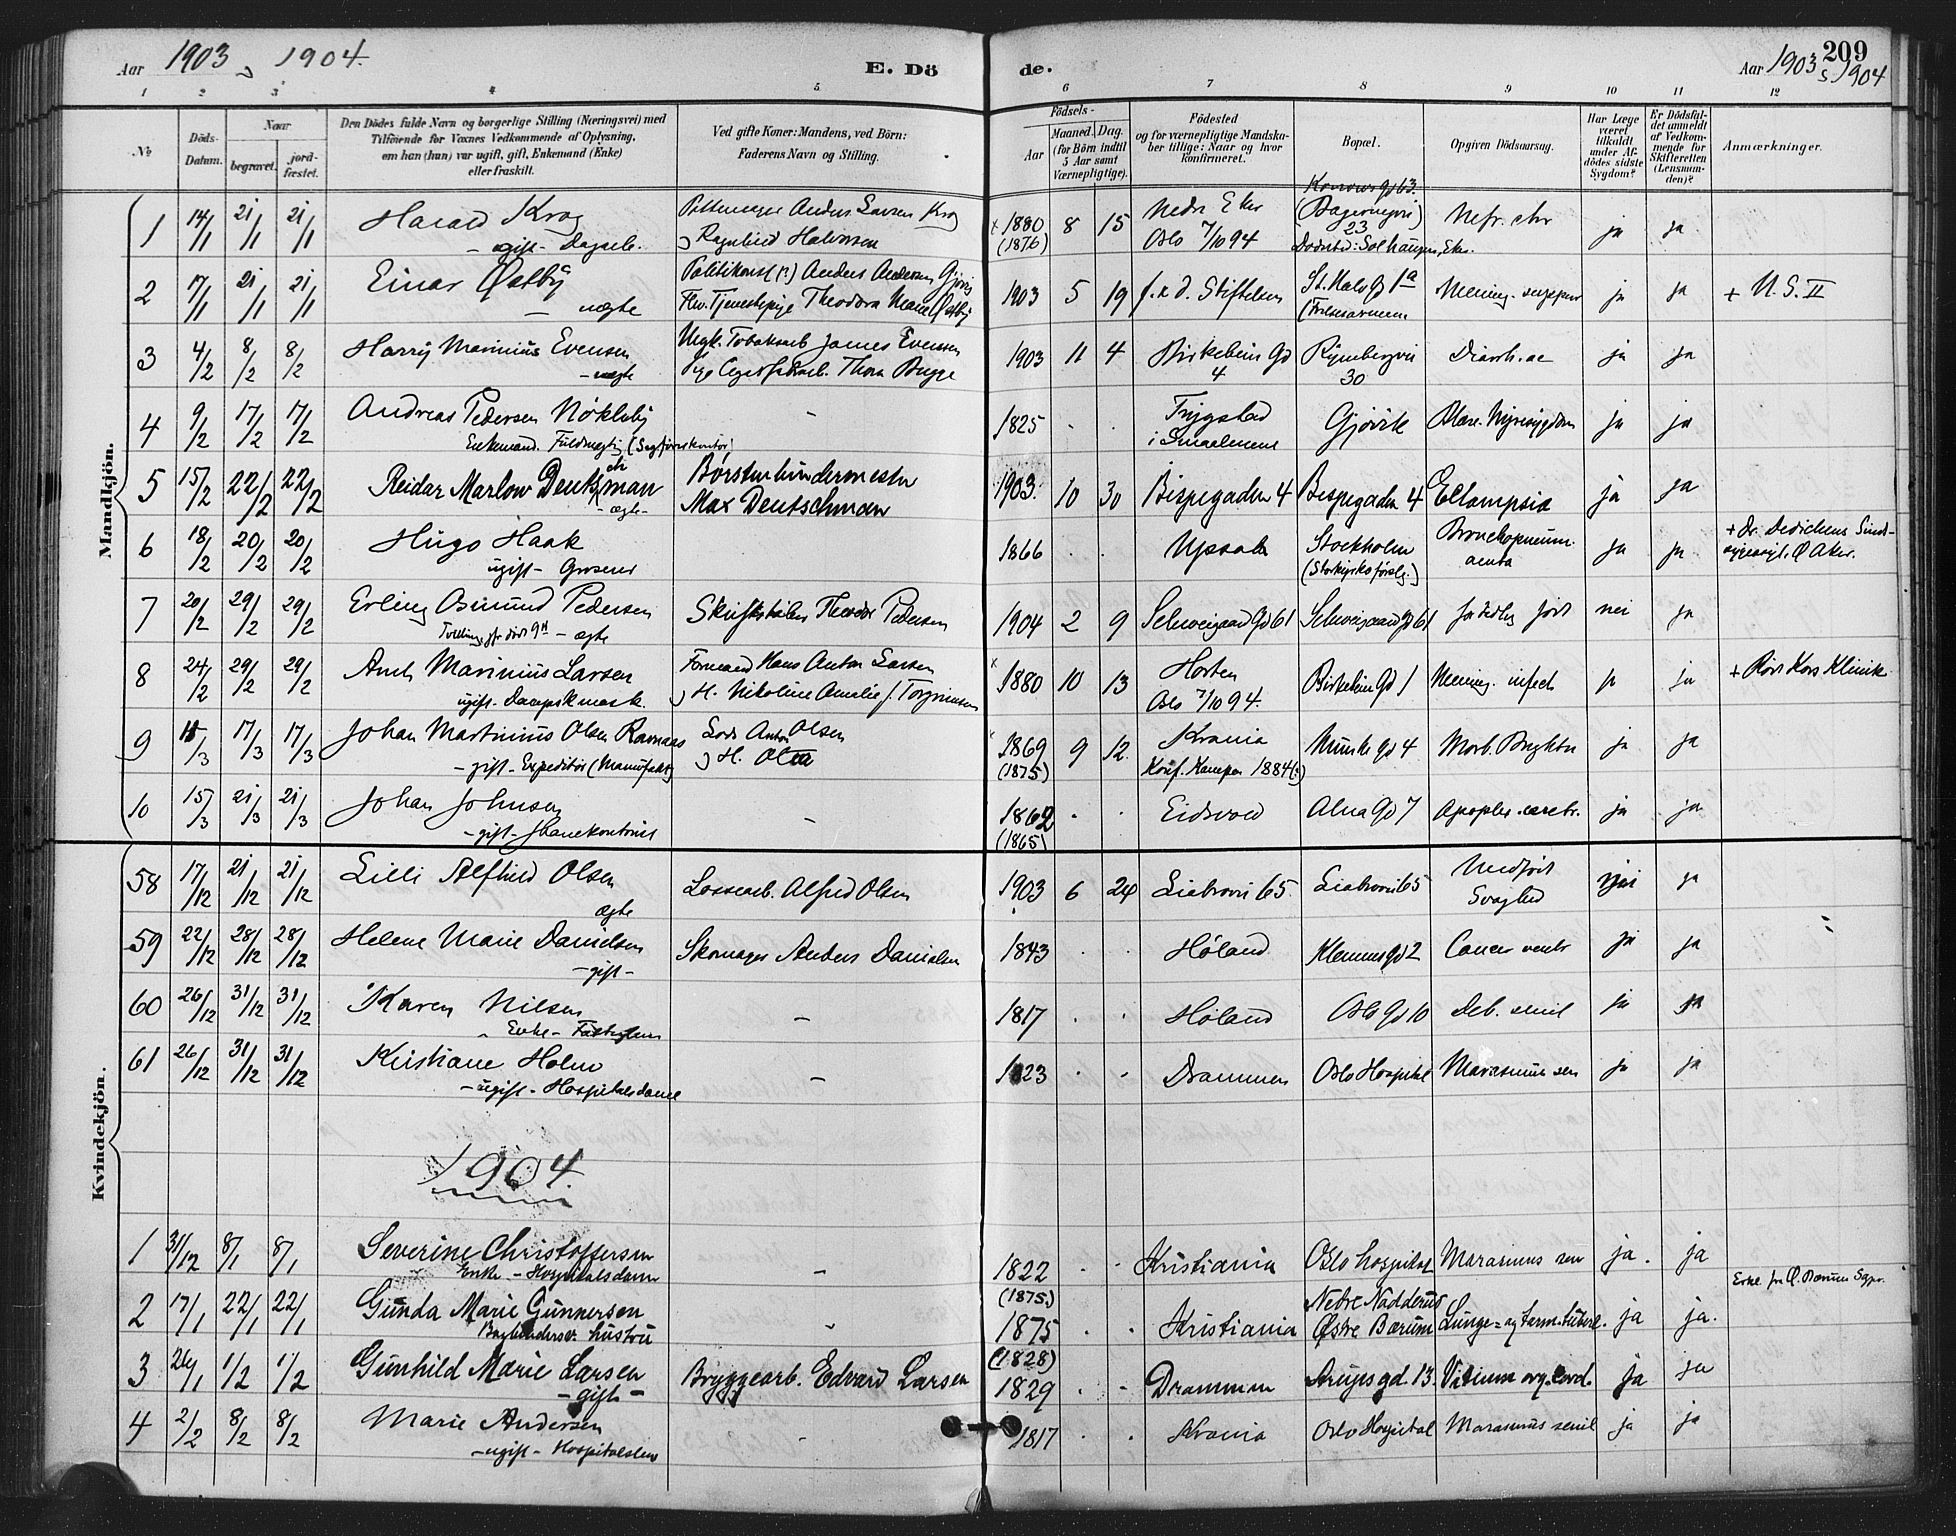 Aar 1903 & 1904. E. Dö de. Aar 1903 & 1904 209
1 2 3 4 5 6 7 8 9 10 11 12
No Döds-Datum. Naar begravet. jordfæstet. Den Dödes fulde Navn og borgerlige Stilling (Næringsvei) med Tilföiende for Voxnes Vedkommende af Oplysning, om han (hun) var ugift, gift, Enkemand (Enke) eller fraskilt. Ved gifte Koner: Mandens, ved Börn: Faderens Navn og Stilling. Födsels- Aar Maaned. Dag. (for Börn indtil 5 Aar samt Værnepligtige). Födested og for værnepligtige Mandskaber tillige: Naar og hvor konfirmeret. Bopæl. Opgiven Dödsaarsag. Har Læge været tilkaldt under Afdödes sidste Sygdom? Er Dödsfaldet anmeldt af Vedkommende for Skifteretten (Lensmanden)? Anmærkninger.
Mandkjön.
1 14/1 21/1 21/1 Harald Krog Anders Larsen Krog 1880 8 15 Nedr Eker Konowsgd 63.
- ugift - Dagarb. Ragnhild Halvorsen (1876) Oslo 7/10 94 23 Nefr. chr ja ja
Dödssted: Solhaugen, Eker.
2 17/1 21/1 21/1 Einar Østby Politikonst (?) Anders Andersen Gjøvig 1903 5 19 f. d. Stiftelsen St. Halvgd 1a Mening. ja ja + U.S. II
- uægte Tjenestepige Theodora Marie Østby (Frelsesarmeen
3 4/2 8/2 8/2 Harry Marinius Evensen Ungk. Tobaksarb James Evensen 1903 11 4 Birkebein Gd Rynbergvei Diarrh. ac ja ja
- uægte Pige Thora Bugge 4 30
4 9/2 17/2 17/2 Andreas Pedersen Nökleby - 1825 . . Trygstad Gjövik Blære. Nyresygdom ja ja
Enkemand. Fuldmægtig (Sagförerkontor) i Smaalenene
5 15/2 22/2 22/2 Reidar Marlow Deutschman Börstenbindermester 1903. 10 30 Bispegaden 4 Bispegaden 4 Eclampsia ja ja
- ægte - Max Deutschman
6 18/2 20/2 20/2 Hugo Haak 1866 . . Upsala Stockholm Bronchopneum. ja ja + Dr. Dedichens Sind-
ugift - Grosserer (Storkyrkoförslg.) acuta sygeasyl. Ø Aker.
7 20/2 29/2 29/2 Erling Osmund Pedersen Skriftstöber Theodor Pedersen 1904 2 9 Schweigaard Gd 61 Schweigaard Gd 61 för tidlig födt nei ja
Tvilling - ægte
8 24/2 29/2 29/2 Marinius Larsen Formand Hans Anton Larsen 1880 10 13 Horten Birkebein Gd 1 Mening. infect ja ja + Röde Kors Klinik
ugift - Dampskmask. H. Nikoline Amalie f. Torgrimsen Oslo 7/10 94.
9 15/3 17/3 17/3 Johan Martinius Olsen Ramnaas Lods Anton Olsen 1869 9 12. Krania Munke Gd 4 Morb. Brightii ja ja
- gift - Expeditör (Manufakt) H. (1875) Konf. Kampen 1884 (?)
10 15/3 21/3 21/3 Johan Johnsen - 1862 . . Eidsvold Alna Gd 7 Apoplex. cerebr. ja ja
- gift - Banekontorist (1865)
Kvindekjön.
58 17/12 21/12 21/12 Lilli Alfhild Olsen Lossearb. Alfred Olsen 1903 6 24 Liabrovei 65. Liabrovei 65 Medfödt nei ja
ægte Svaghed
59 22/12 28/12 28/12 Helene Marie Danielsen Skomager Anders Danielsen 1843 . . Höland Klemens Gd 2 Cancer ventr ja ja
- gift -
60 26/12 31/12 31/12 Karen Nilsen - 1817 . . Höland Oslo Gd 10 Deb. senil ja ja
Enke - Fattiglem
61 26/12 31/12 31/12 Kristiane Holm - 1823 . . Drammen Oslo Hospital Marasmus sen ja ja
- ugift - Hospitalsdame
1904
1 31/12 8/1 8/1 Severine Christoffersen - 1822 . . Kristiania Oslo hospital Marasmus sen ja. ja
Enke - Hospitalsdame
2 17/1 22/1 22/1 Gunda Marie Gunnersen - (1875.) 1875 . . Kristiania Nedre Nadderud Østre Bærum Lunge- og tarm-tuberk. ja ja. Erkl. fra Ø. Bærum Sgpr.
Bogbinders Hustru
3 26/1 1/2 1/2 Gunhild Marie Larsen Bryggearb. Edvard Larsen (1828) 1829 . - Drammen Arupsgd. 13. Vitium org. cord. ja ja
- gift -
4 2/2 8/2 8/2 Marie Andersen - 1817 . . Krania Oslo Hospital Marasmus senil ja ja
- ugift - Hospitalslem